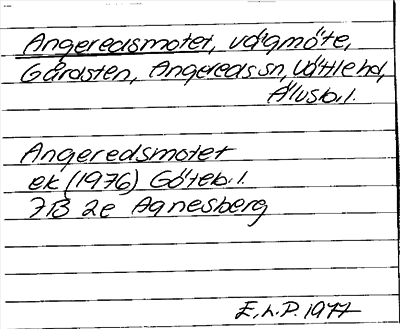 Angeredsmotet, vägmöte,
Gårdsten, Angereds sn, Vättle hd,
Älvsb.l.
Angeredsmotet
ek (1976) Göteb.l.
7B 2e Agnesberg
E.h.P. 1977